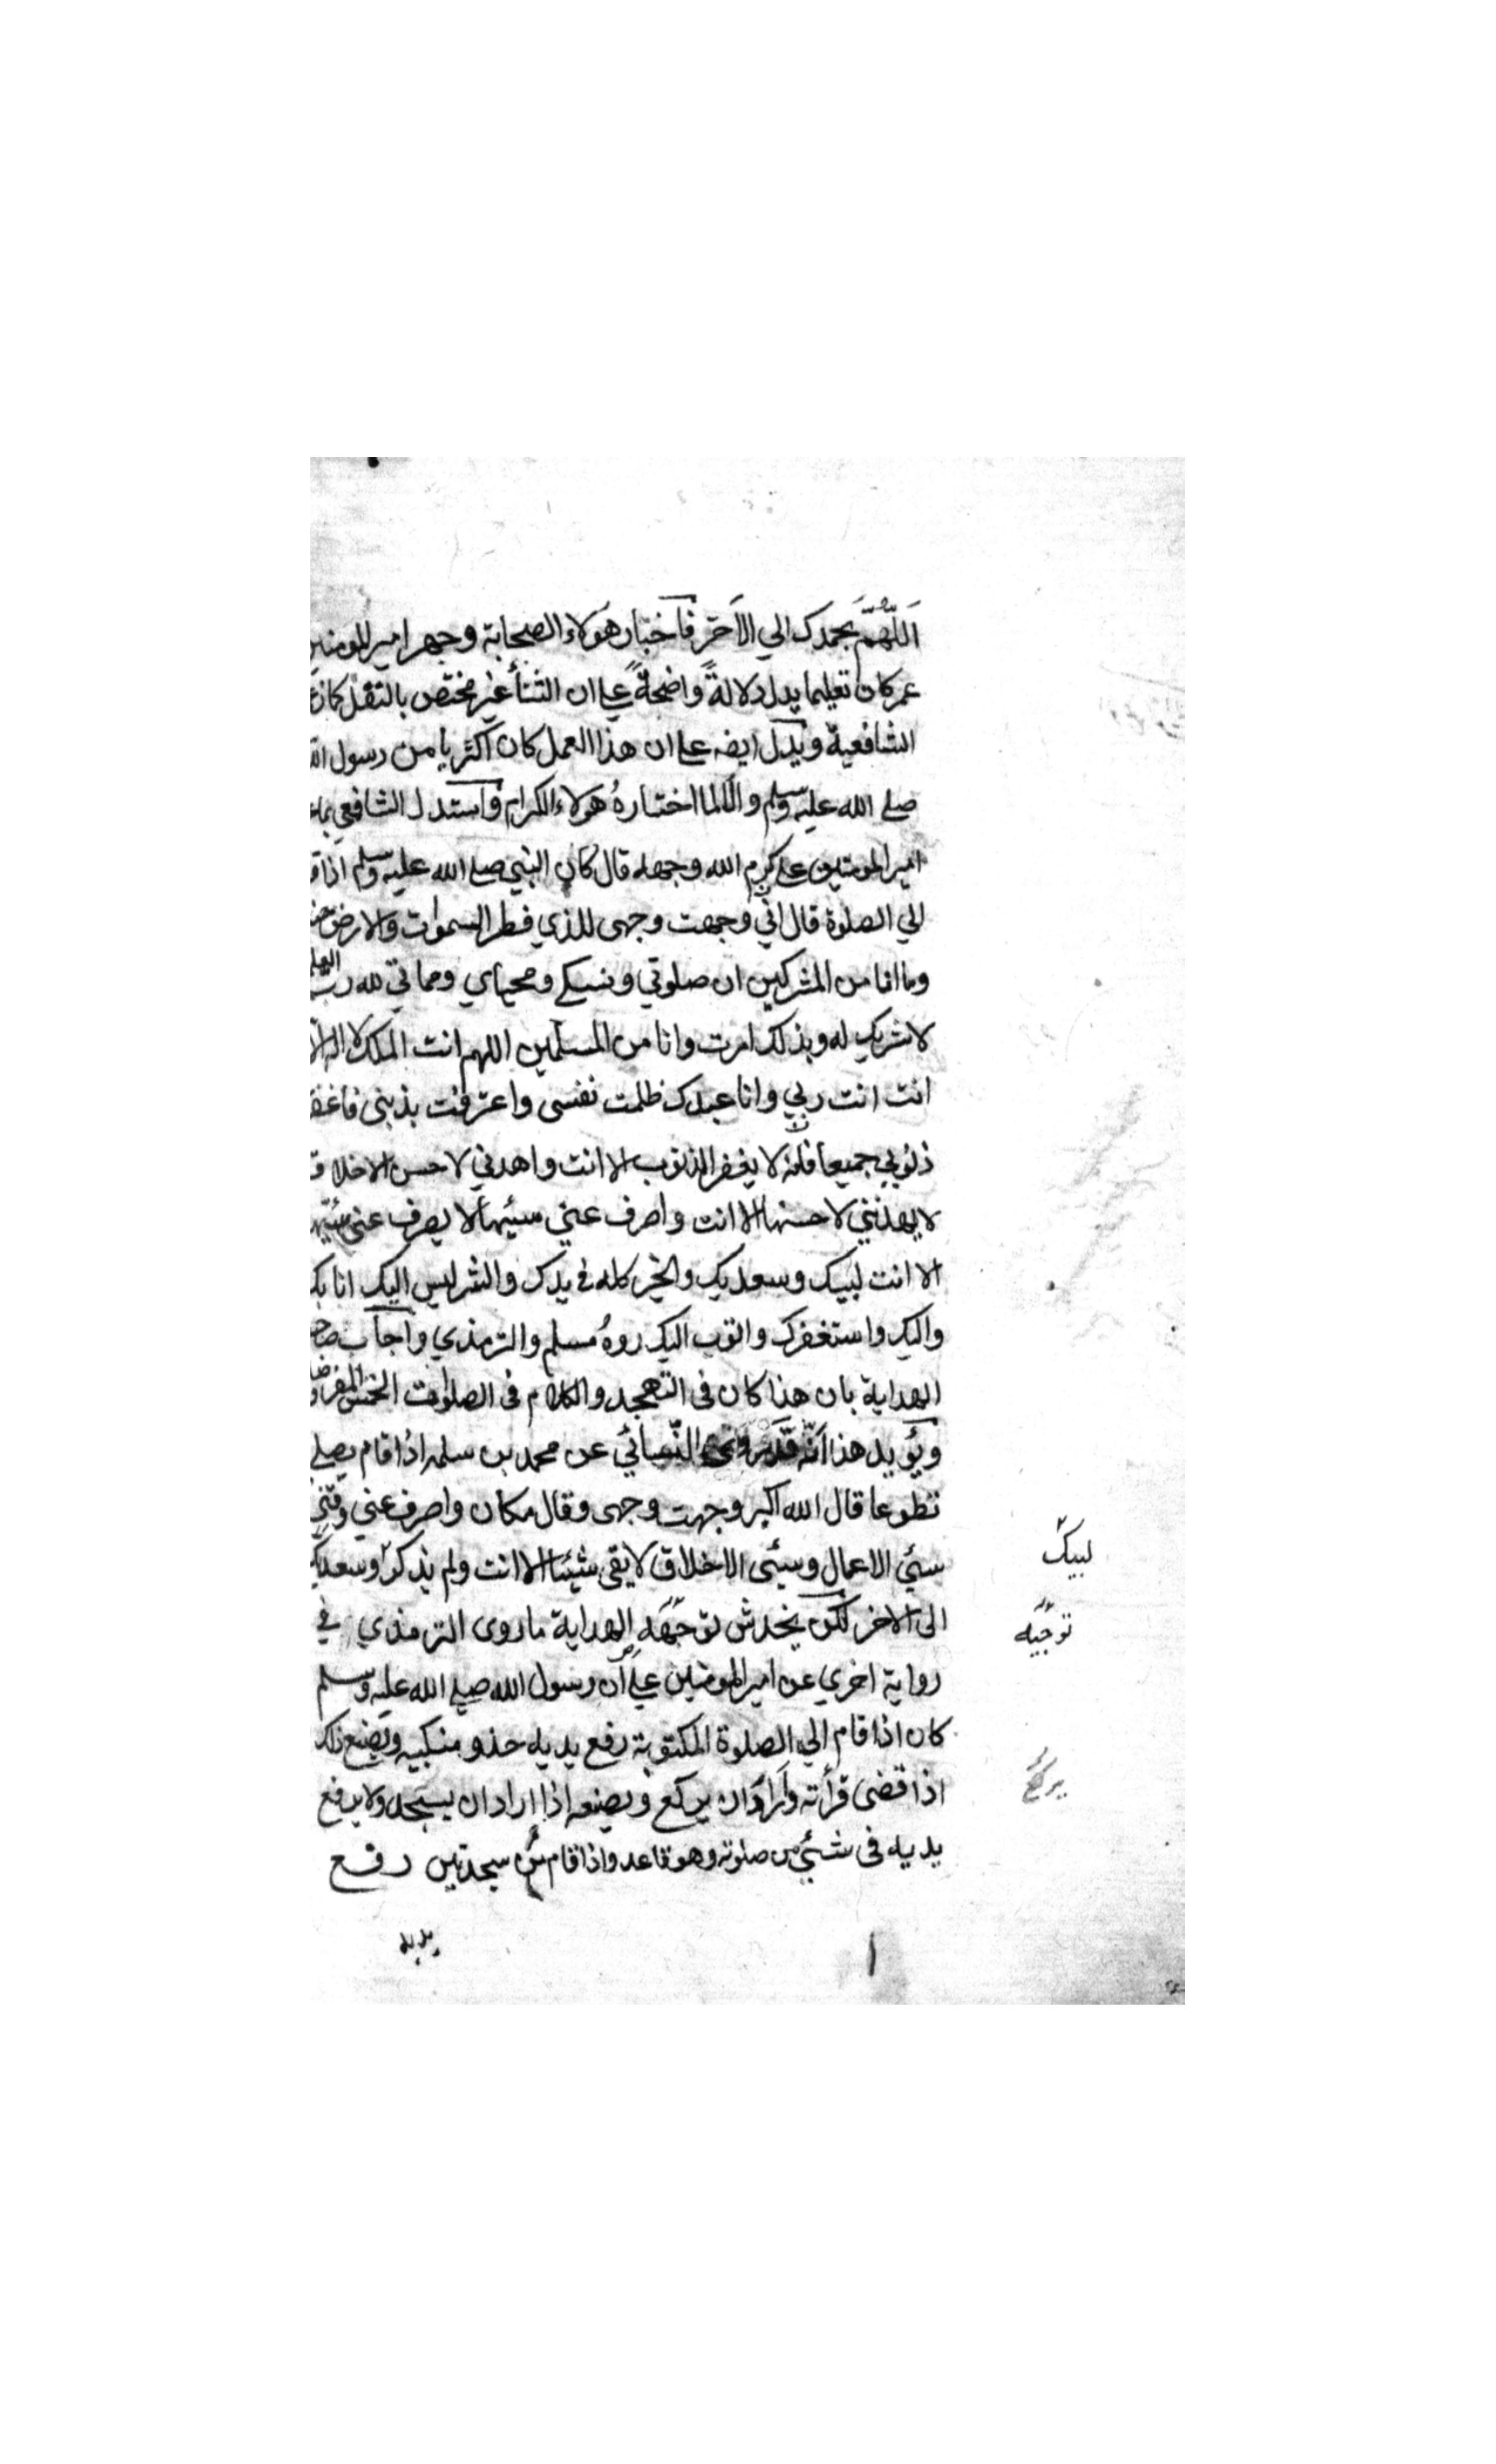 اَللّٰهُمَّ بحمدک الي الاٰخر فاختیار هولاء الصحابة وجهر امیر المومنین
عمر کان تعلیما یدل دلالةً واضحةً علی ان الثنأ غیر مختص بالنفل کما
الشافعیة ویدل ایضہ علی ان هذا العمل کان اکثریا من رسول
صلے الله علیه وسلم والّا لما اختارهُ هولاء الکرام واستدل الشافعي بما
امیر المومنین علی کرم الله وجهه قال کان النبي صلے الله علیه وسلم اذا
الي الصلوة قال اني وجهت وجهی للذي فطر السموات والارض
وما انا من المشرکین ان صلوتي ونسکي ومحیاي ومماتي لله ربّ العلم
لا شریک له وبذلک امرت وانا من المسلمین اللهم انت الملک لا اله الا
انت انت ربي وانا عبدک ظلمت نفسی واعترفت بذنبی فاغفر
ذنوبي جمیعا فانه لا یغفر الذنوب الا انت واهدني لاحسن الاخلاق
لا یهدنني لاحسنها الا انت واصرف عني سیئها لا یصرف عني سیئها
الا انت لبیک وسعدیک والخیر کله في یدک والشر لیس الیک انا بک
والیک واستغفرک واتوب الیک روهُ مسلم والترمذي واجاب صاحب
الهدایة بان هذا کان فی التهجد والکلام فی الصلوات الخمس المفروضة
ویؤید هذا انّه قد روی النّسائي عن محمد بن سلمه اذا قام یصلے
تطوعا قال الله اکبر وجهت وجهی وقال مکان واصرف عني وقني
سئي الاعمال وسیئی الاخلاق لا یقی سیئها الا انت ولم یذکر وسعدیک
الی الاخر لکن یخدش توجهه الهدایة ما روی الترمذي في
روایة اخري عن امیر المومنین علي ان رسول الله صلے الله علیه وسلم
کان اذا قام الي الصلوة المکتوبة رفع یدیه حذو منکبیه ویصنع ذلک
اذا قضی قرأته واراد ان یرکع ویصنعه اذا اراد ان یسجد ولا یرفع
یدیه فی شئي من صلوته وهو قاعد واذا قام من سجدتین رفع
یدیه
لبیک
توجیه
یرکع